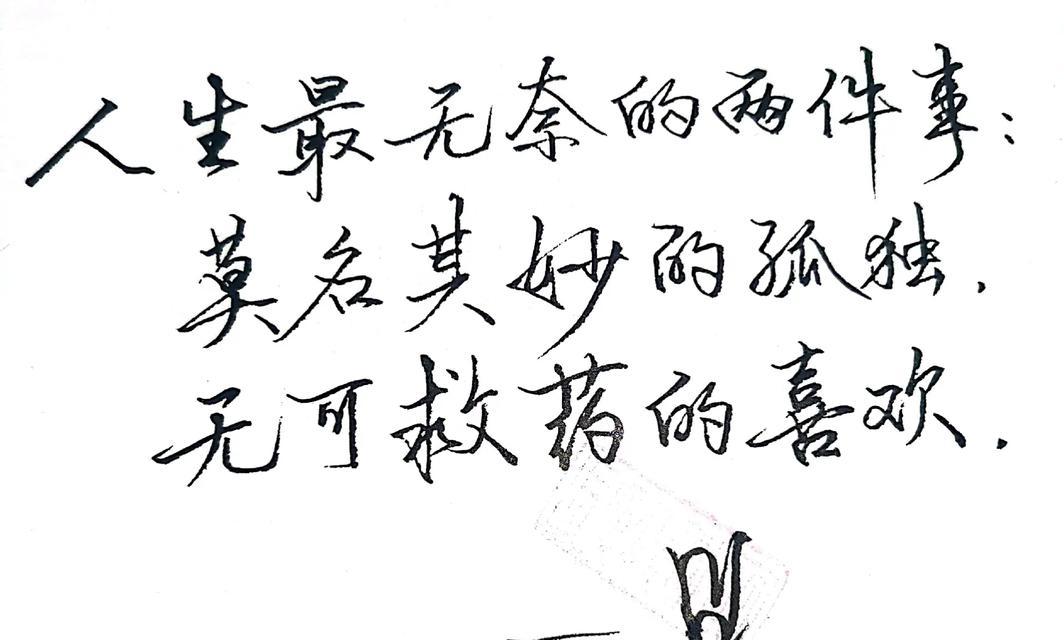 人生最无奈的两件事：
莫名其妙的孤独.
无可救药的喜欢.